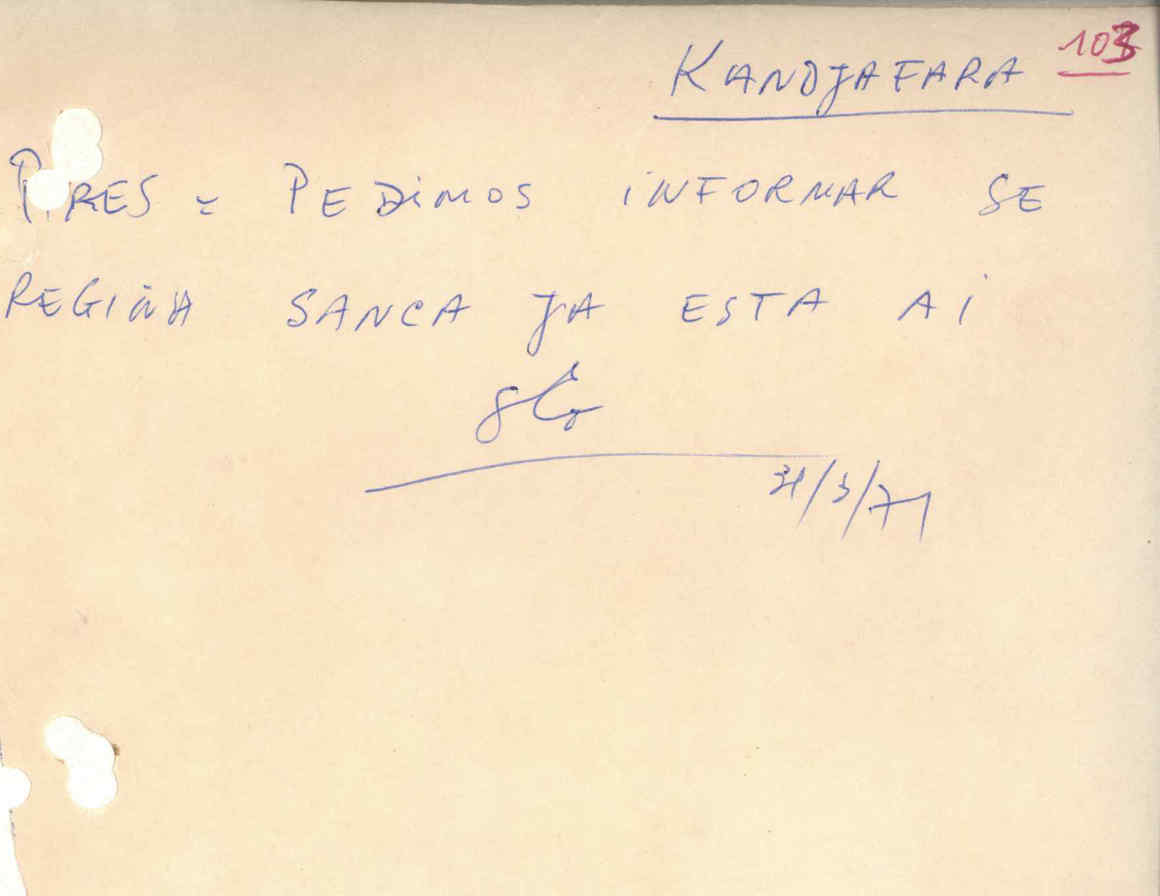 KANDJAFARA 103
PIRES = PEDIMOS INFORMAR SE
REGINA SANCA JA ESTA AI
31/3/71